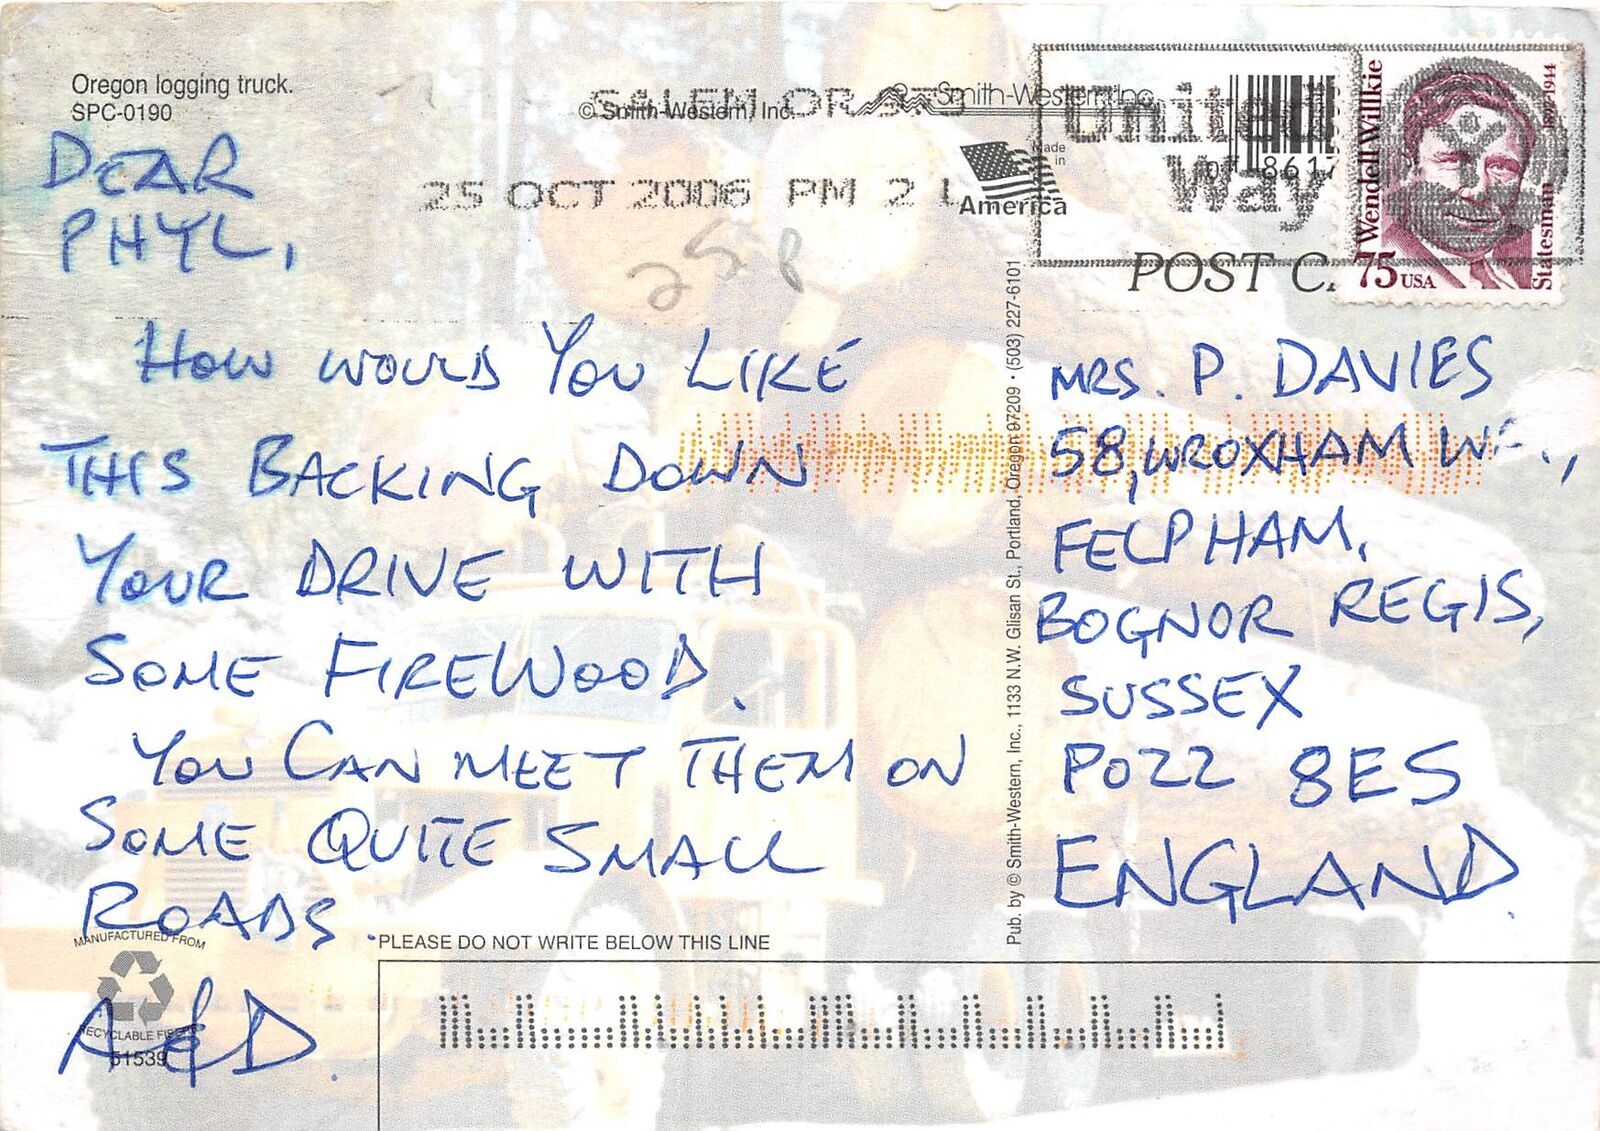 Oregon logging truck.
SPC-0190
© Smith-Western, Inc.
Smith-Western, Inc.
SALEM OR 973
25 OCT 2006 PM 2 L
Made
in
America
United
Way
POST
Wendell Willkie
1892-1944
Statesman
75 USA
25p
DEAR
PHYL,
HOW WOULD YOU LIKE
THIS BACKING DOWN
YOUR DRIVE WITH
SOME FIREWOOD.
YOU CAN MEET THEM ON
SOME QUITE SMALL
ROADS.
A&D.
MRS. P. DAVIES
58, WROXHAM
FELPHAM,
BOGNOR REGIS,
SUSSEX
PO22 8ES
ENGLAND.
Pub. by © Smith-Western, Inc., 1133 N.W. Glisan St., Portland, Oregon 97209 • (503) 227-6101
MANUFACTURED FROM
RECYCLABLE
51539
PLEASE DO NOT WRITE BELOW THIS LINE